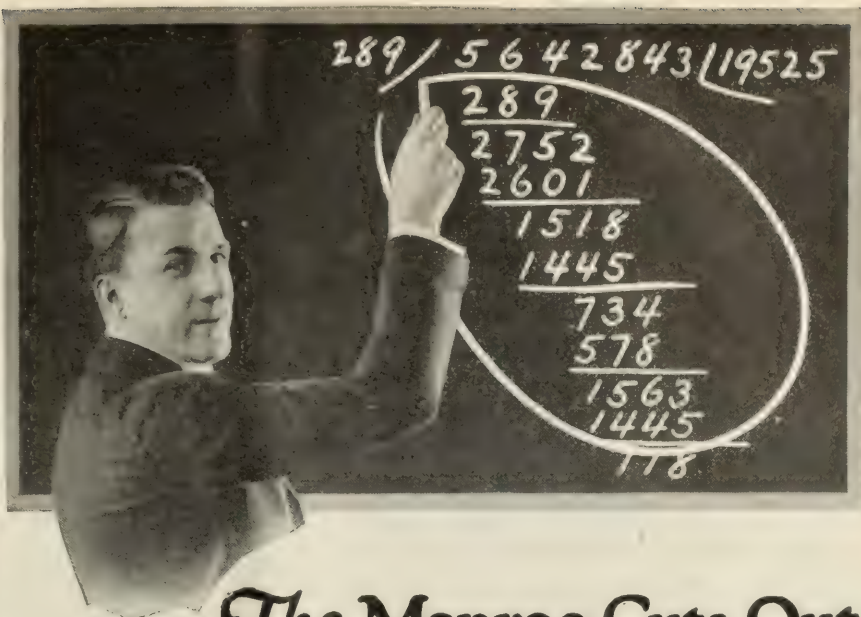 289/5642843(19525
289
2752
2601
1518
1445
734
578
1563
1445
118
The Monroe Cuts Out